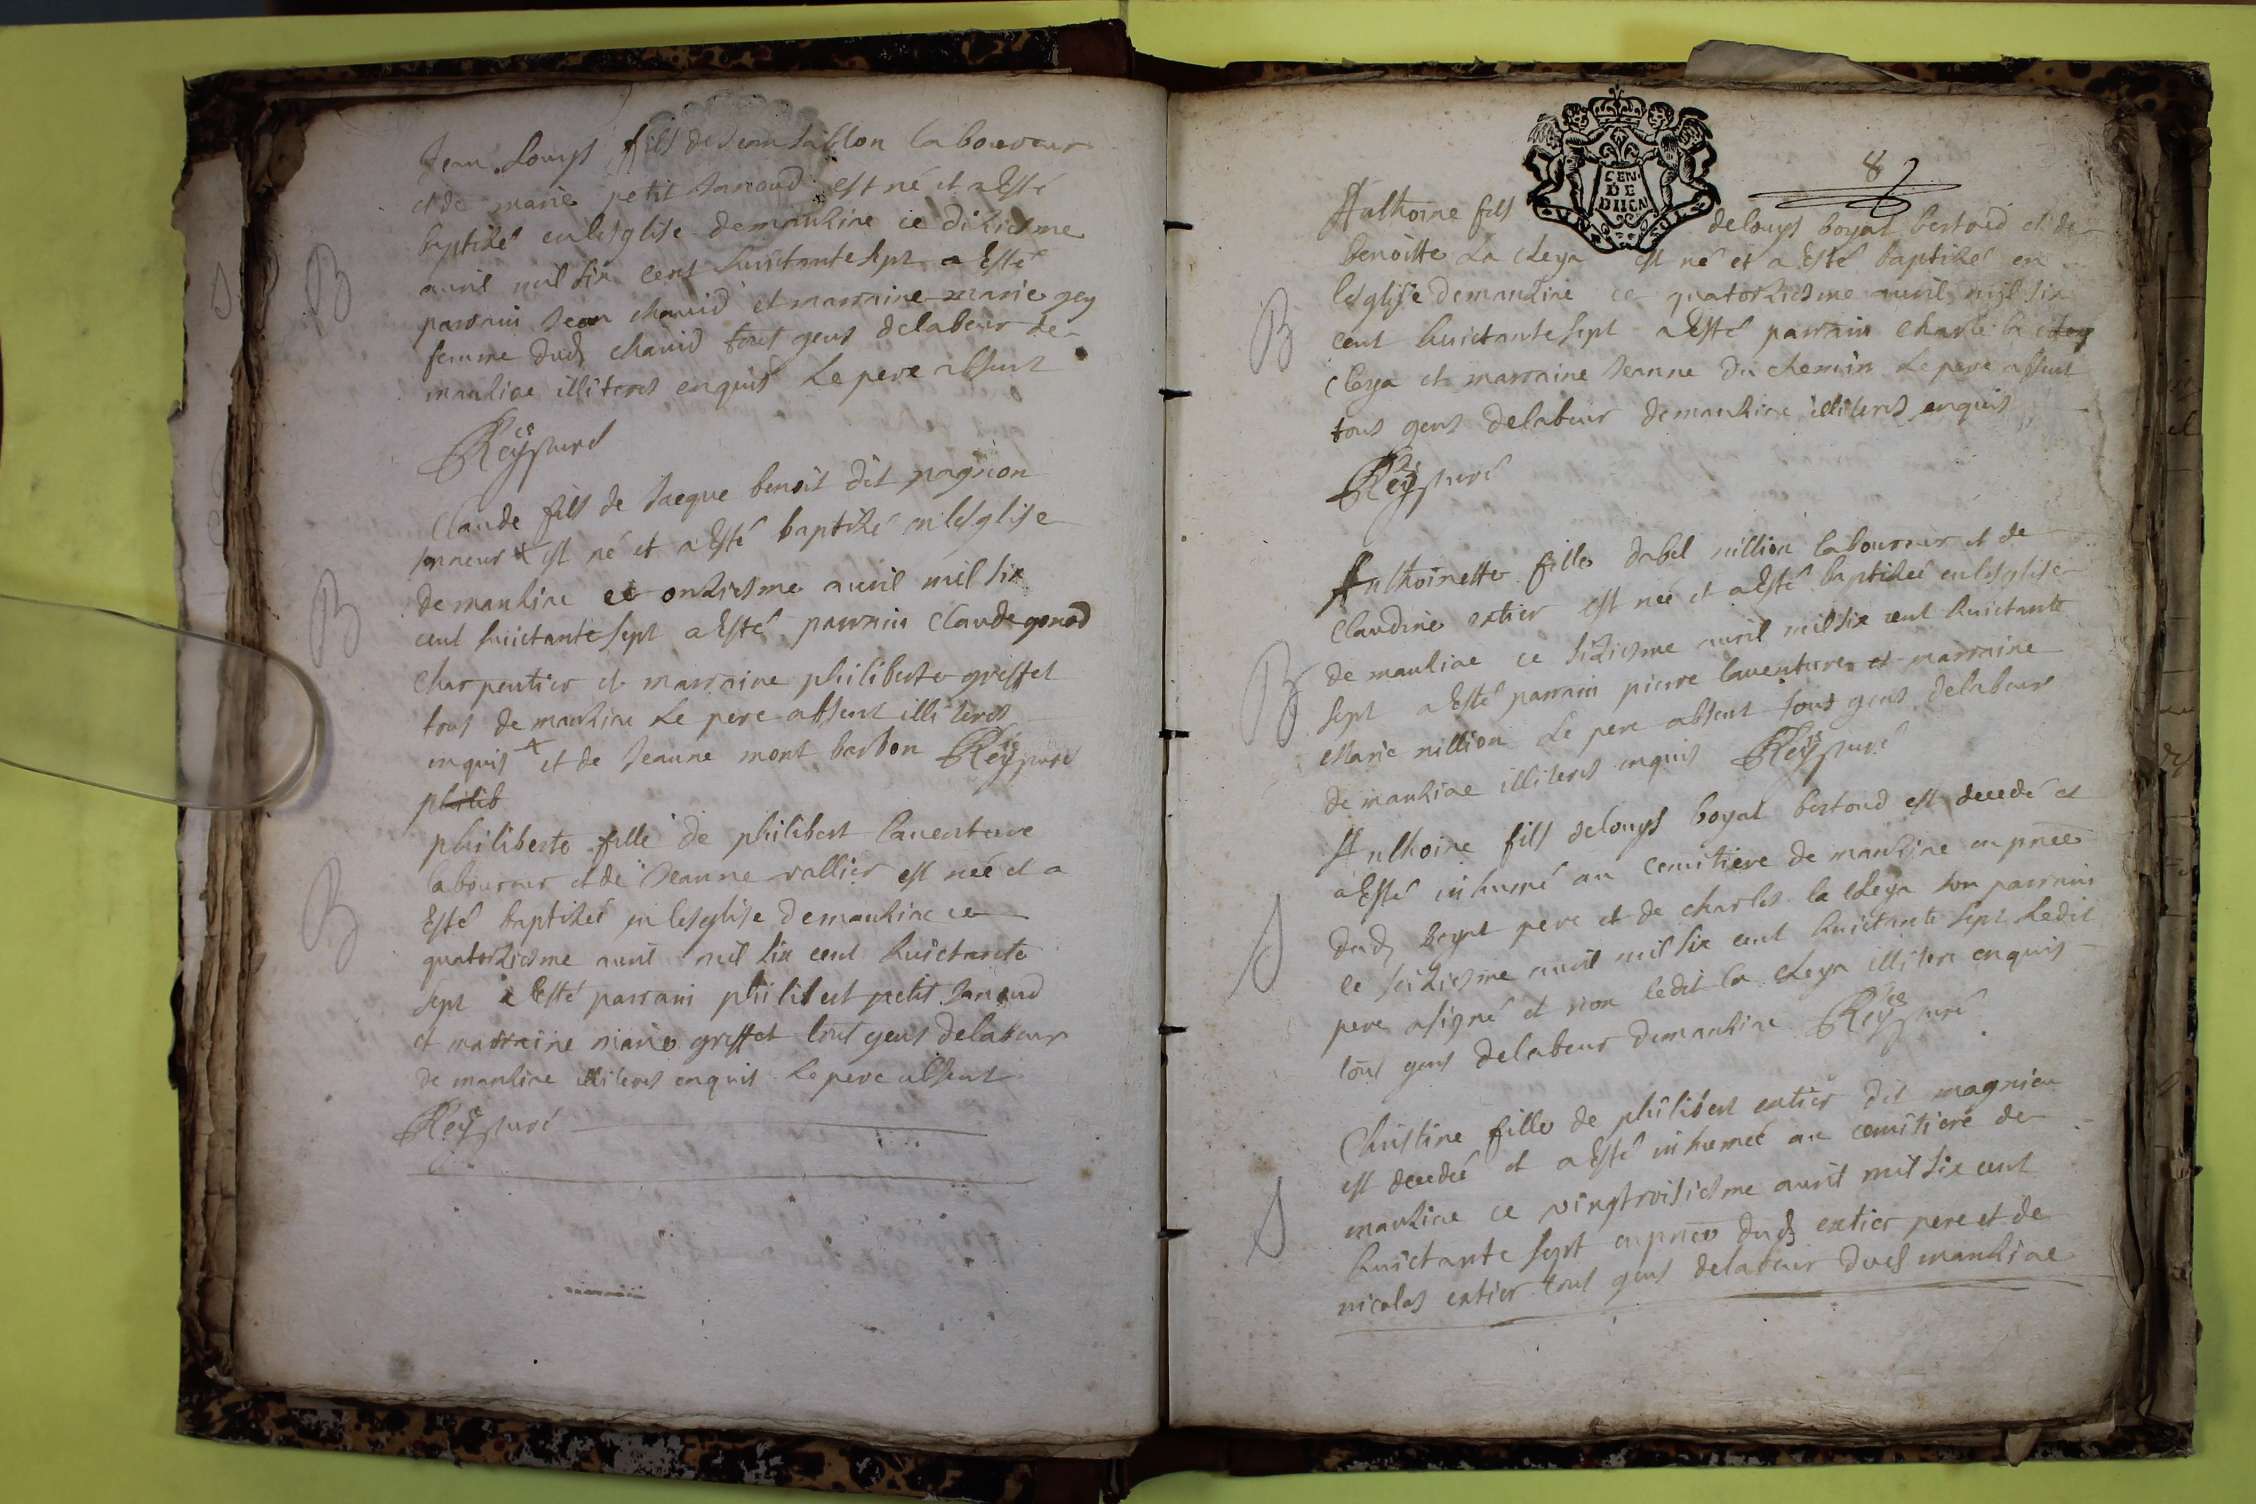 Jean Louys fils de Jean Sablon laboureur
et de marie petit Janroud est né et a Esté
baptizé en lesglise demanziac ce dixiesme
avril mil six cent huictante sept a Esté
parrain Jean chanid et marraine marie gey
femme dud chanid tous gens delabeur de
manziac illiteres enquis Le pere absent
Rey curé
Claude fils de Jacque benoit dit pagnion
+ est né et a Esté baptizé en lesglise
demanziac ce onziesme avril mil six
cent huictante sept a Esté parrain Claude gonod
charpentier et marraine philiberte greffet
tous de manziac Le pere absent illiteres
enquis + et de Jeanne mont barbon Rey curé
philib
philiberte fille de philibert laventure
laboureur et de Jeanne vallier est née et a
Esté baptizée en lesglise demanziac ce
quatorziesme avril mil six cent huictante
sept a Esté parrain philibert petit Janroud
et marraine marie greffet tous gens delabeur
de manziac illiteres enquis Le pere absent
Rey curé
8
GEN
DE
DIION
Anthoine fils delouys boyat bertoud et de
benoitte La cleya est né et a Esté baptizé en
lesglise demanziac ce quatorziesme avril mil six
cent huictante sept a Esté parrain Charle la
cleya et marraine Jeanne du chemin Le pere absent
tous gens delabeur demanziac illiteres enquis
Rey curé
Anthoinette fille dabel nillion laboureur et de
Claudine extier est née et a Esté baptizée en lesglise
de manziac ce sixiesme avril mil six cent huictante
sept a Esté parrain pierre laventure et marraine
Marie nillion Le pere absent tous gens delabeur
de manziac illiteres enquis Rey curé
Anthoine fils delouys boyat bertoud est decedé et
a Esté inhumé au cemitiere de manziac en pnce
dud boyat pere et de charles la cleya son parrain
le seiziesme avril mil six cent huictante sept Ledit
pere a signé et non ledit la cleya illitere enquis
tous gens delabeur demanziac Rey curé
Christine fille de philibert extier dit magnien
est decedée et a Esté inhumée au cemitiere de
manziac ce vingtroisiesme avril mil six cent
huictante sept en pnce dud extier pere et de
nicolas extier tous gens delabeur dud manziac